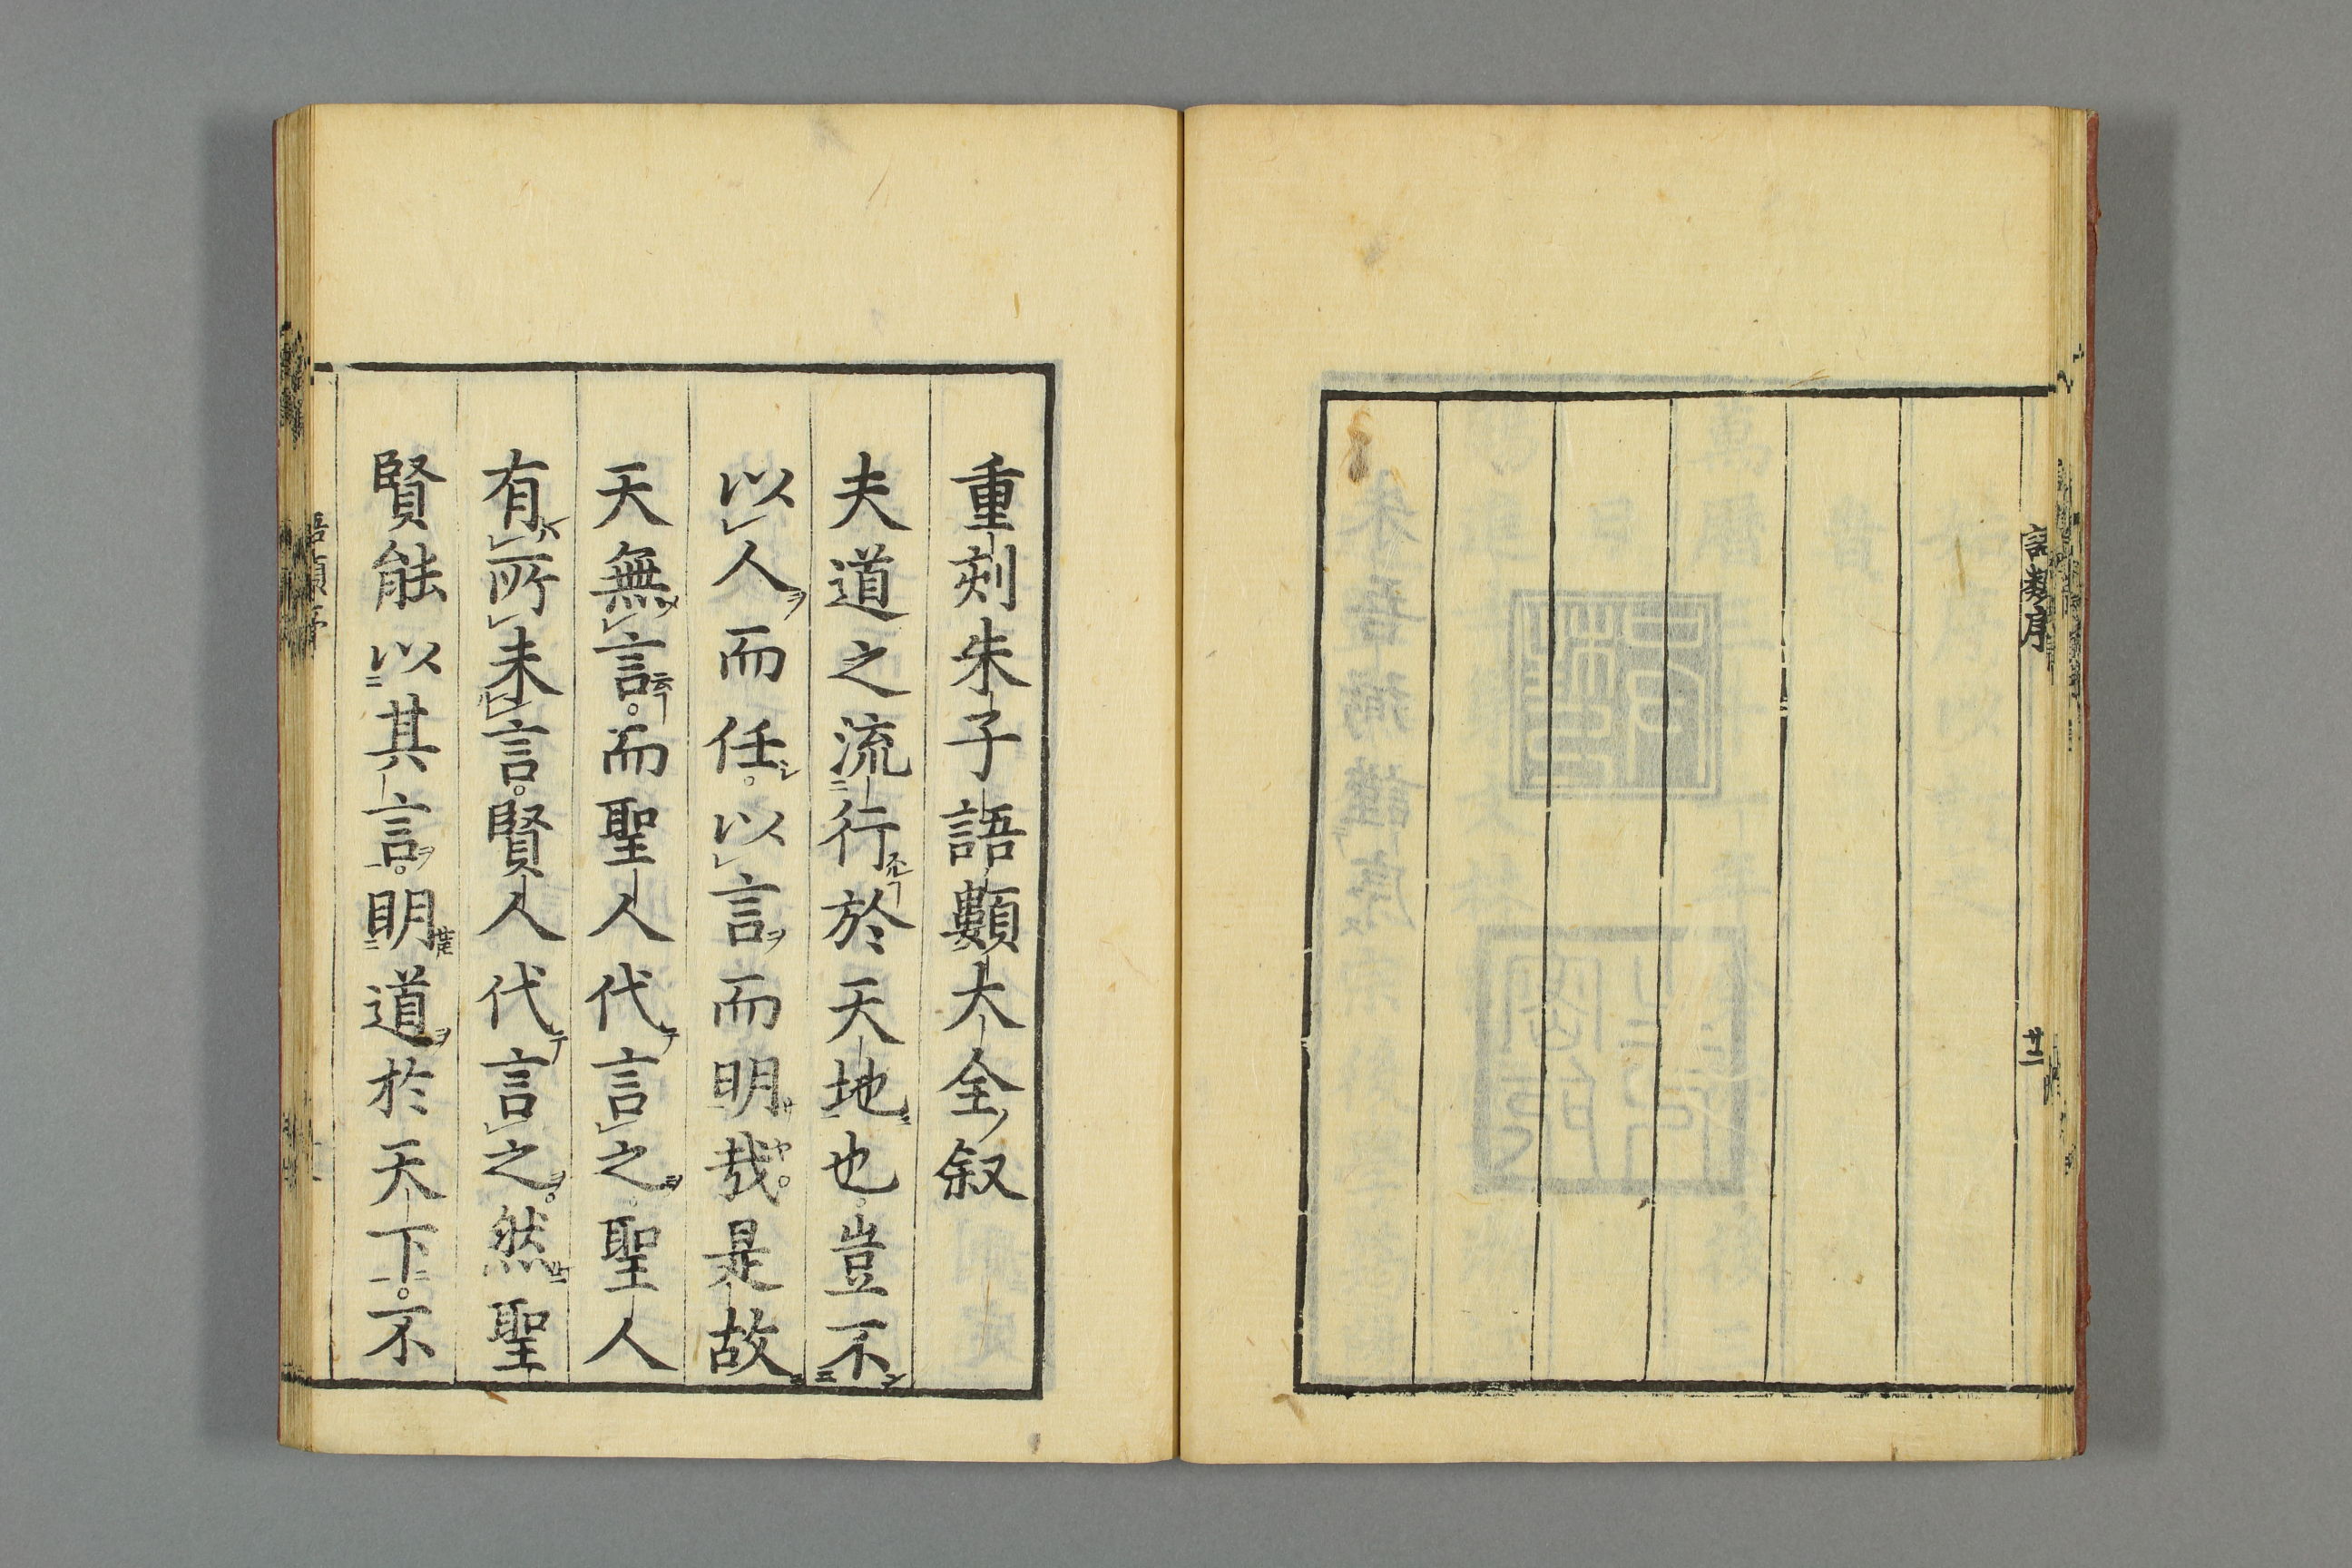 語類序
廿二
重刻朱子語類大全叙
夫道之流行於天地也豈不
以人而任。以言而明哉。是故
天無言。而聖人代言之。聖人
有所未言。賢人代言之。然聖
賢能以其言。明道於天下。不